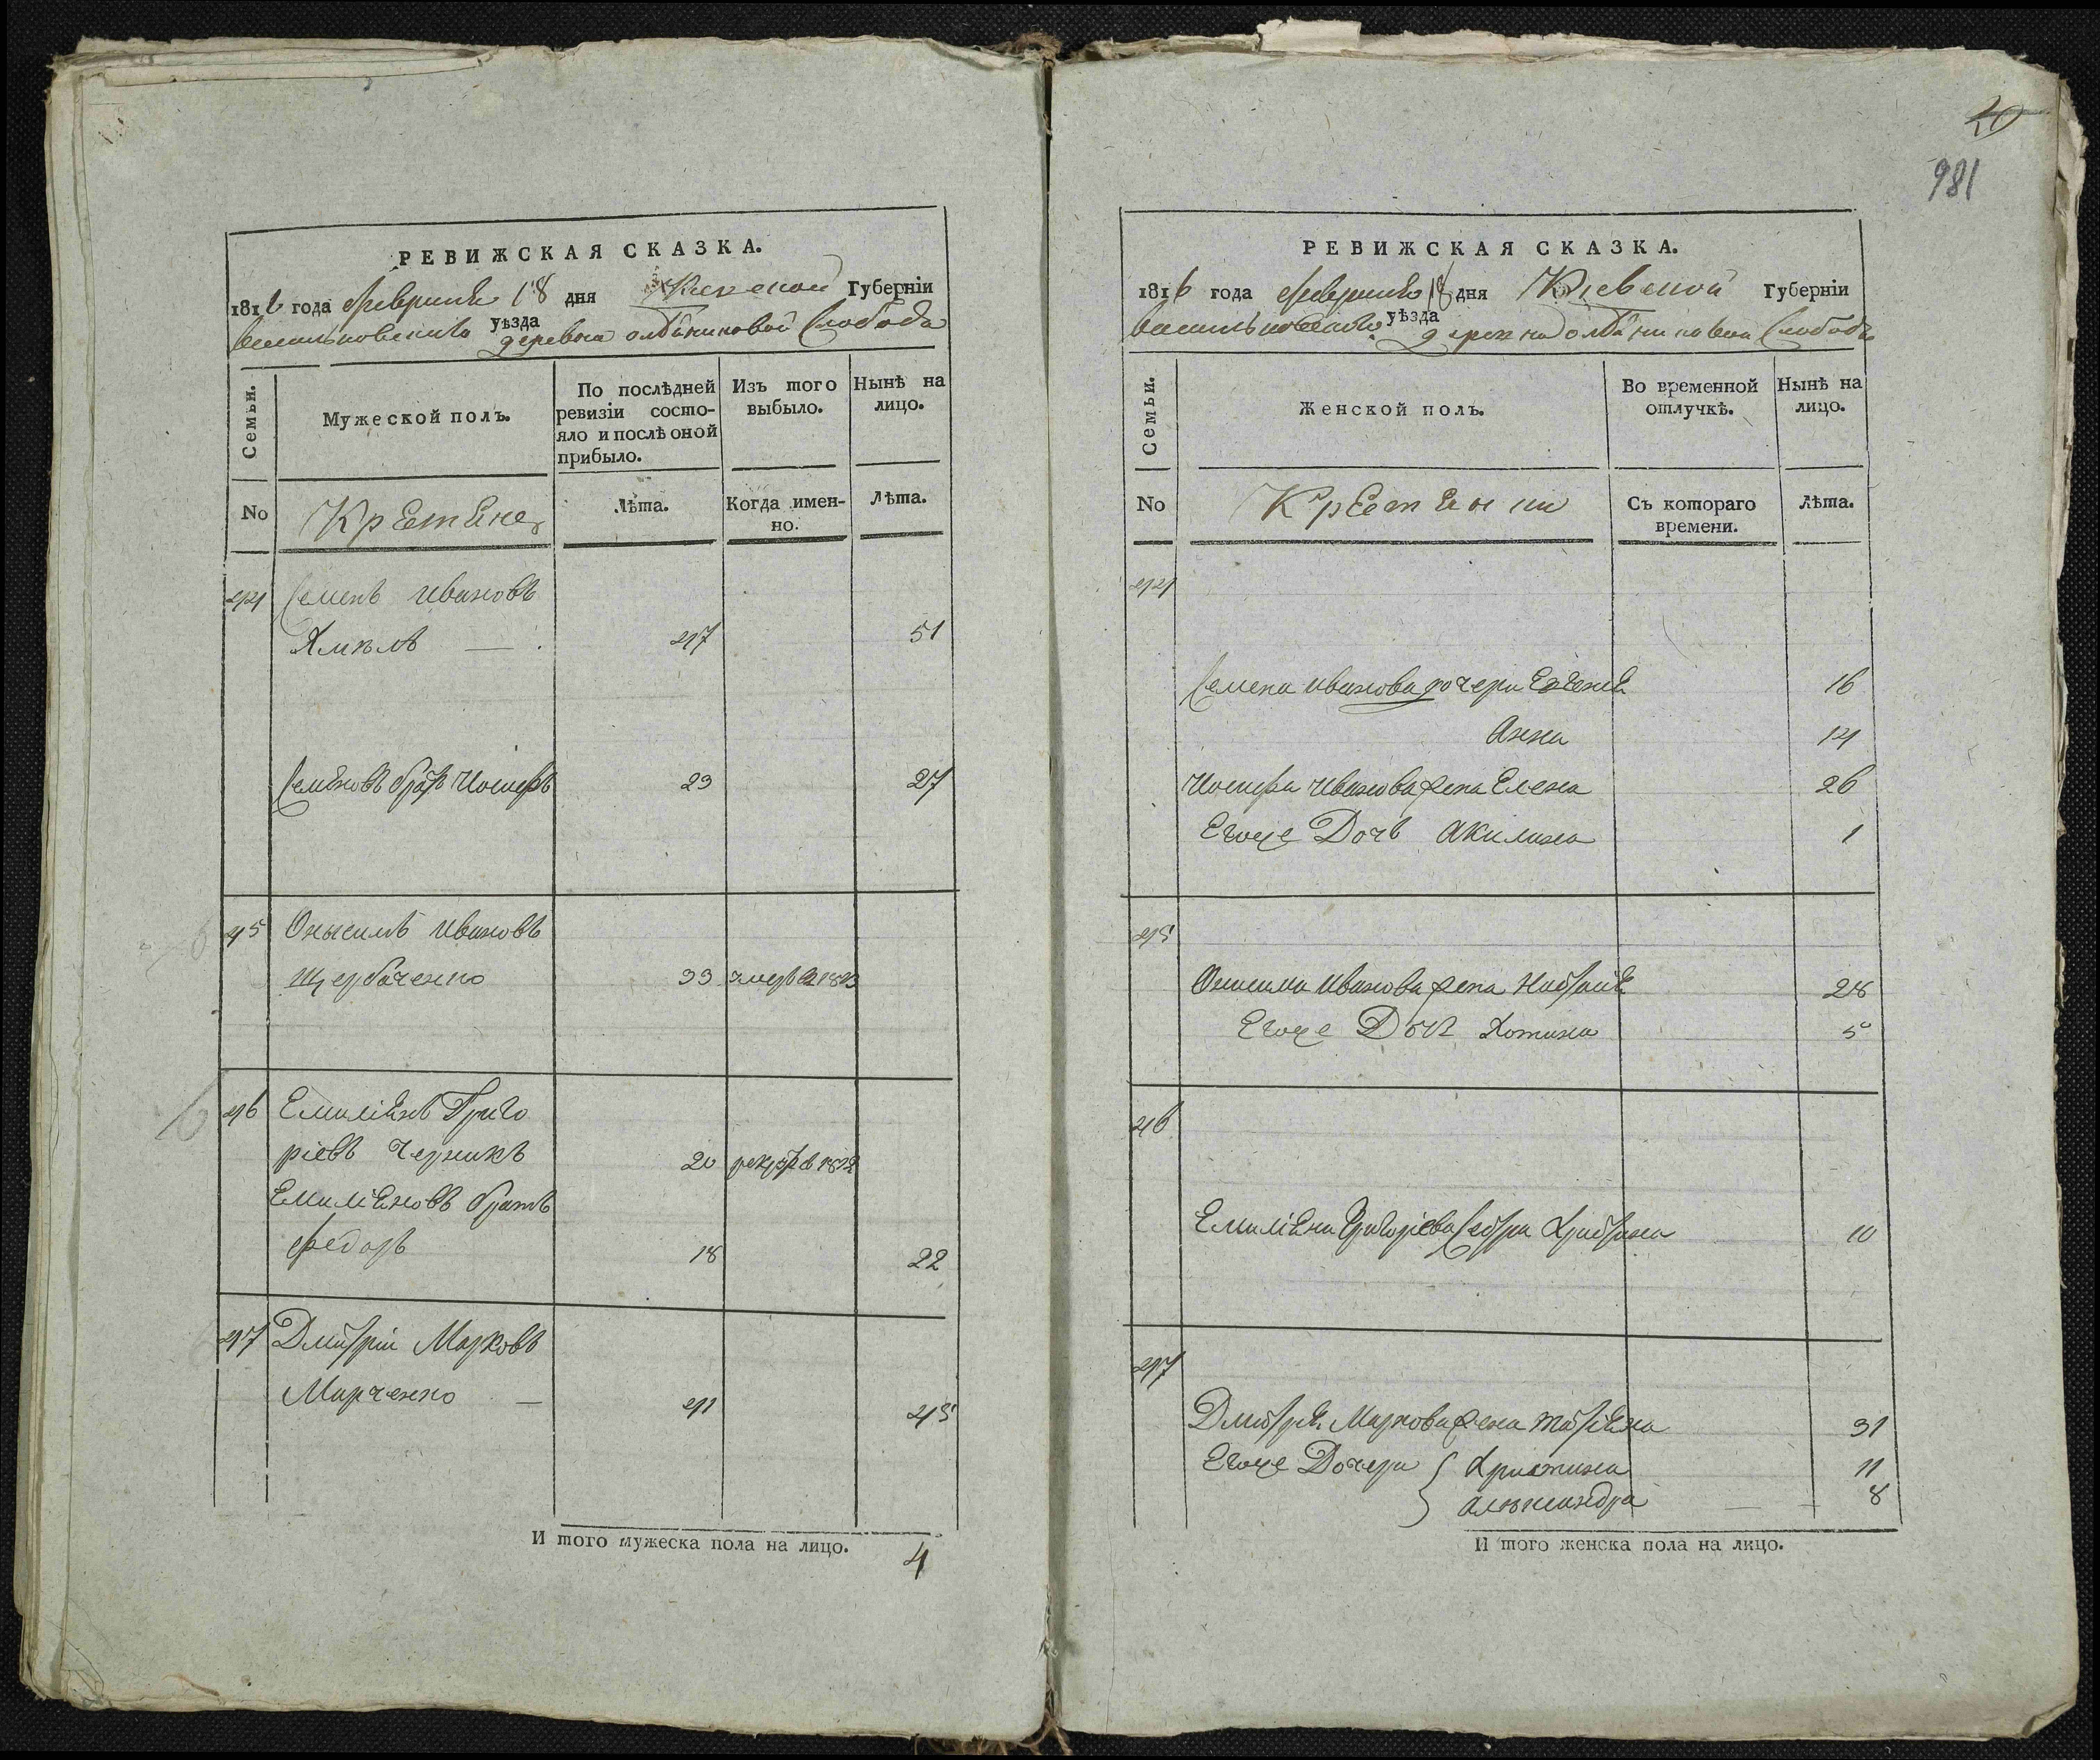 РЕВИЖСКАЯ СКАЗКА.
1816 года февраля 18 дня Киевской Губерніи
васильковскаго уѣзда деревня Слобода
Семьи. Мужеской полъ. По послѣдней ревизіи состо-яло и послѣ оной прибыло. Изъ того выбыло. Нынѣ на лицо.
No Крестяне Лѣта. Когда имен-но. Лѣта.
44 Семенъ Ивановъ
Хмѣль — 47 51
Семѣновъ братъ Иосифъ 23 27
45 Онысимъ Ивановъ
Щербаченко 33 умеръ в
46 Емиліянъ Григо
ріевъ Черникъ 20 рекрут в 1812
Емиліяновъ братъ
Федоръ 18 22
47 Дмитрій Марковъ
Марченко — 41 45
И того мужеска пола на лицо. 4
20
981
РЕВИЖСКАЯ СКАЗКА.
1816 года февраля 18 дня Кіевской Губерніи
васильковскаго уѣзда Слобода
Семьи. Женской полъ. Во временной отлучкѣ. Нынѣ на лицо.
No Крестяни Съ котораго времени. Лѣта.
44
Семена Иванова дочери 16
Анна 14
Иосифа Иванова жена Елена 26
Егоже Дочь Акилина 1
45
Онисима Иванова жена 28
Егоже Дочь Хотина 5
46
Емиліяна Григоріева Сестра Христина 10
47
Дмитрія Маркова жена Татіяна 31
Егоже Дочери { Христина 11
Александра — — 8
И того женска пола на лицо.